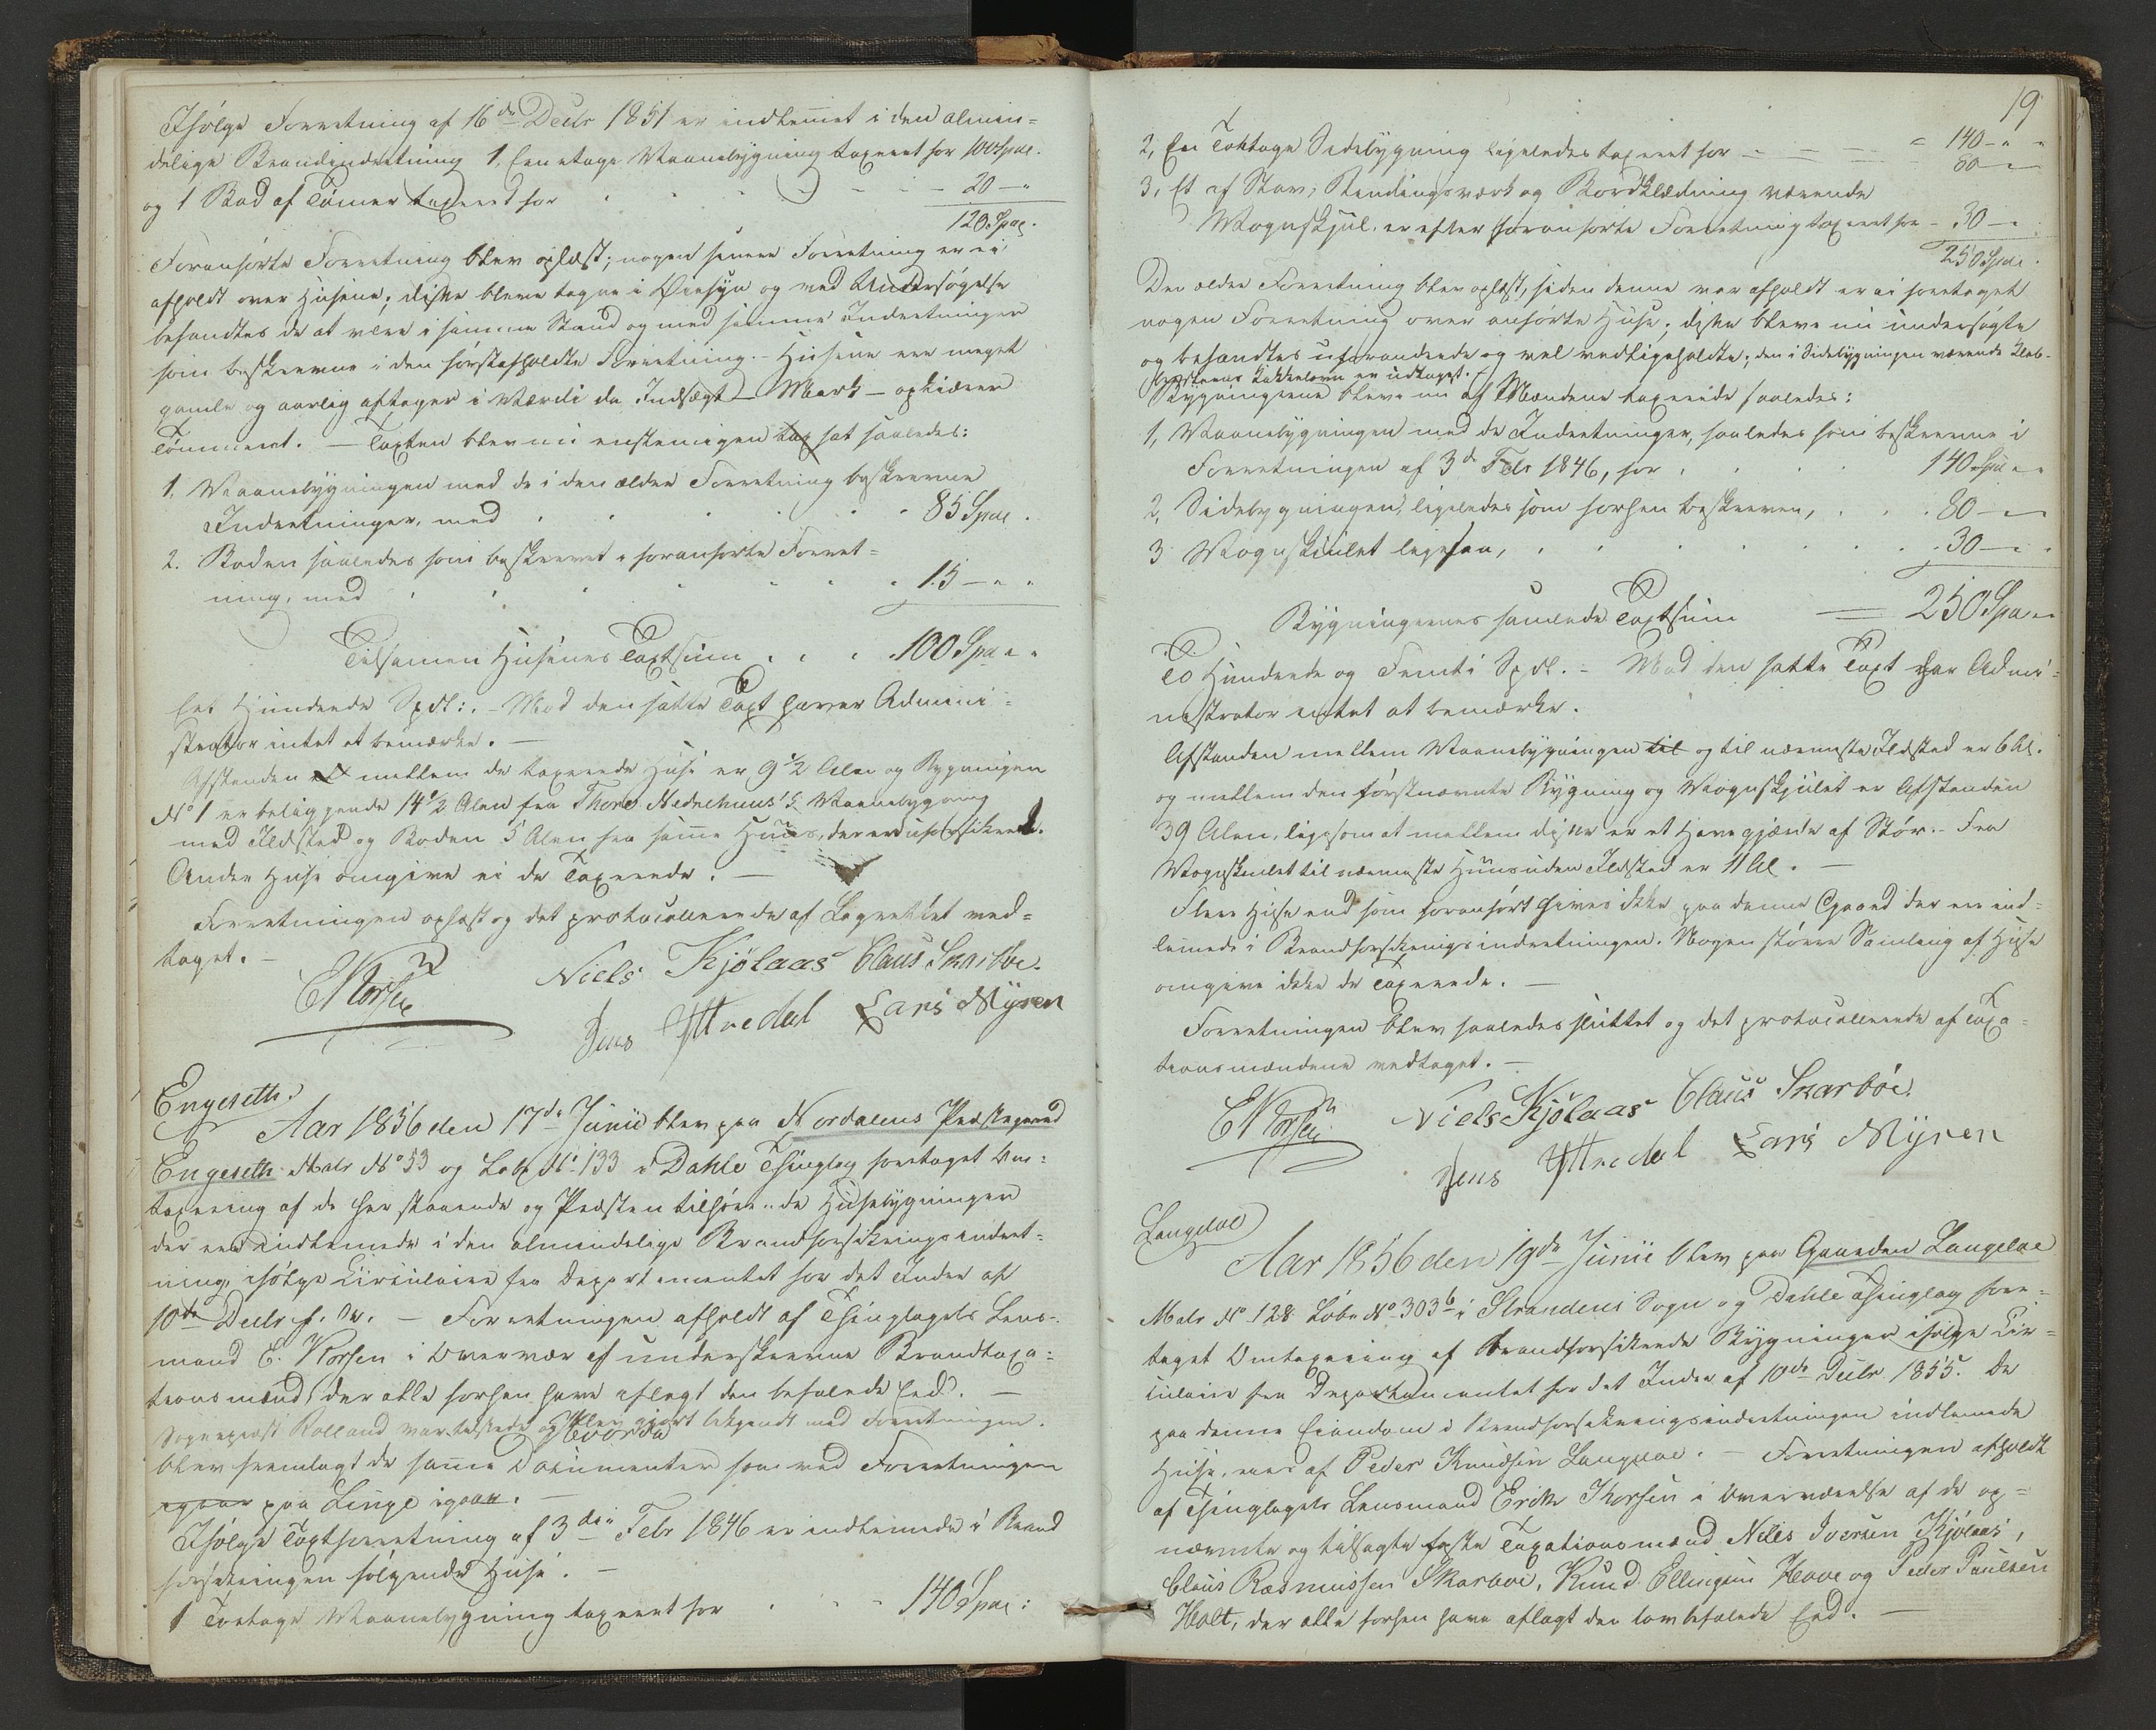 Ifølge Forretning af 16de Decbr 1851 er indtemet i den almin=
delige Brandindretning 1, Een etage Vaanebygning taxeret for 100 Spdl.
og 1 Bod af Tømer taxeret for 20 — "
120 Spdl.
Foranførte Forretning blev oplæst; nogen senere Forretning er ei
afholdt over Husene; disse bleve tagne i Øiesyn og ved Undersøgelse
befandtes de at være i samme Stand og med samme Indretninger
som beskrevne i den førstafholdte Forretning. – Husene ere meget
gamle og aarlig aftager i Værdi da Indsægt – Mark – optærer
Tømmeret. – Taxten blev nu enstemigen tax sat saaledes:
1. Vaanebygningen med de i den ældre Forretning beskrevne
Indretninger, med 85 Spdl.
2. Boden saaledes som beskrevet i foranførte Forret=
ning, med 15 — " "
Tilsamen Husenes Taxtsum 100 Spd " "
Eet Hundrede Spdl:. – Mod den satte Taxt haver Admini=
strator intet at bemærke. —
Afstanden mellem de taxerede Huse er 9 1/2 Alen og Bygningen
No 1 er beliggende 14 1/2 Alen fra Thore Nedrehuus's Vaanebygning
med Ildsted og Boden 5 Alen fra same Huus, der er uforsikret.
Andre Huse omgive ei de Taxerede. —
Forretningen oplæst og det protocollerede af Lagrettet ved=
taget. –
E Korsen Niels Kjölaas Claus Skarböe.
Jens Yttredal Lars Myren
Engeseth.
Aar 1856 den 17de Junii blev paa Nordalens Præstegaard
Engeseth Matr No 53 og Løb No 133 i Dahle Thinglag foretaget Om=
taxering af de her staaende og Præsten tilhørende Husebygninger
der ere indtemede i den almindelige Brandforsikringsindret=
ning, ifølge Circulaire fra Departementet for det Indre af
10de Decbr f. A. – Forretningen afholdt af Thinglagets Lens=
mand E. Korsen i Overvær af underskrevne Brandtaxa=
tionsmænd, der alle forhen have aflagt den befalede Eed. —
Sognepræst Rolland var tilstede og blev gjort bekjendt med Forretningen.
Hvorda
blev fremlagt de same Documenter som ved Forretningen
igaar paa Linge igaar. —
Ifølge Taxtforretning af 3die Febr 1846 er indtemede i Brand
forsikringen følgende Huse. —
1 Toetages Vaanebygning taxeret for 140 Spdl:
19
2, En Toetages Sidebygning ligeledes taxeret for 140 — " "
80 — "
3, Et af Stav, Bindingsværk og Bordklædning værende
Vognskjul, er efter foranførte Forretning taxeret for 30 — "
250 Spdl.
Den ældre Forretning blev oplæst, siden denne var afholdt er ei foretaget
nogen Forretning over anførte Huse; disse bleve nu undersøgte
og befandtes uforandrede og vel vedligeholdte; den i Sidebygningen værende Kleb-
bersteens Kakkelovn er udtaget. –
Bygningerne bleve nu af Mændene taxerede saaledes:
1, Vaanebygningen med de Indretninger, saaledes som beskrevne i
Forretningen af 3de Febr 1846, for 140 Spd " "
2, Sidebygningen, ligeledes som forhen beskreven, 80 — "
3 Vognskiulet ligesaa, 30 — "
Bygningernes samlede Taxtsum = 250 Spd " "
To Hundrede og Femti Spdl. – Mod den satte Taxt har Admi=
nistrator intet at bemærke.
Afstanden mellem Vaanebygningen til og til nærmeste Ildsted er 6 Al.
og mellem den førstnævnte Bygning og Vognskjulet er Afstanden
39 Alen, ligesom at mellem disse er et Havegjærde af Stør. – Fra
Vognskiulet til nærmeste Huus uden Ildsted er 11 Al. —
Flere Huse end som foranført gives ikke paa denne Gaard der ere ind=
temede i Brandforsikringsindretningen. Nogen større Samling af Huse
omgive ikke de Taxerede. —
Forretningen blev saaledes sluttet og det protocollerede af Taxa=
tionsmændene vedtaget. —
E Korsen Niels Kjölaas Claus Skarböe.
Jens Yttredal Lars Myren
Langeloe
Aar 1856 den 19de Junii blev paa Gaarden Langeloe
Matr No 128 Løbe No 303b i Strandens Sogn og Dahle Thinglag fore=
taget Omtaxering af brandforsikrede Bygninger ifølge Cir=
culaire fra Departementet for det Indre af 10de Decbr 1855. De
paa denne Eiendom i Brandforsikringsindretningen indtemede
Huse, eies af Peder Knudsen Langeloe. – Forretningen afholdt
af Thinglagets Lensmand Erik Korsen i Overværelse af de op=
nævnte og tilsagte faste Taxationsmænd Nils Iversen Kjölaas,
Claus Rasmussen Skarboe, Knud Ellingsen Hove og Peder Paulsen
Holt, der alle forhen have aflagt den lovbefalede Eed. —